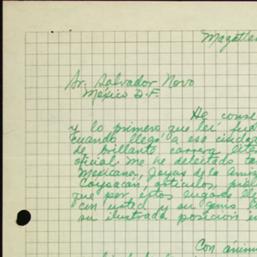 Mazatlán
Sr. Salvador Novo
México D.F.
He conse
y lo primero que leí fué
cuando llegó a esa ciudad
de brillante carrera lite
oficial. Me he deleitado ta
Mexicana, Joyas de la Amig
Coyoacán, artículos, pról
que por estos
con usted y su genio
su ilustrada posición en
Con ánim